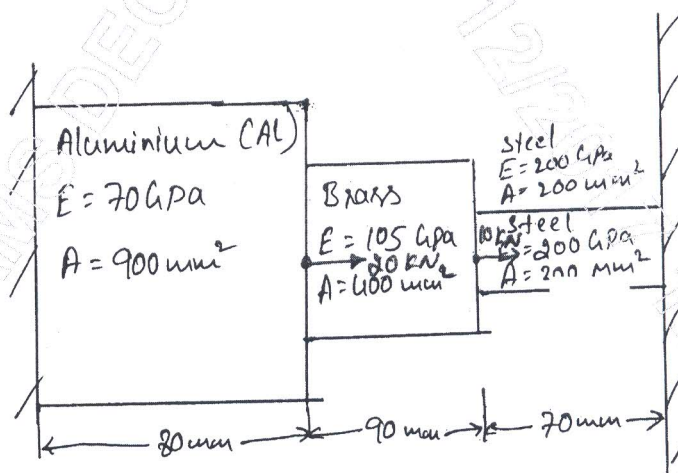 Aluminium (Al)
E = 70 GPa
A = 900 mm²
Brass
E = 105 GPa
20 KN
A = 400 mm²
steel
E = 200 GPa
A = 200 mm²
10 KN
steel
E = 200 GPa
A = 200 mm²
80 mm
90 mm
70 mm